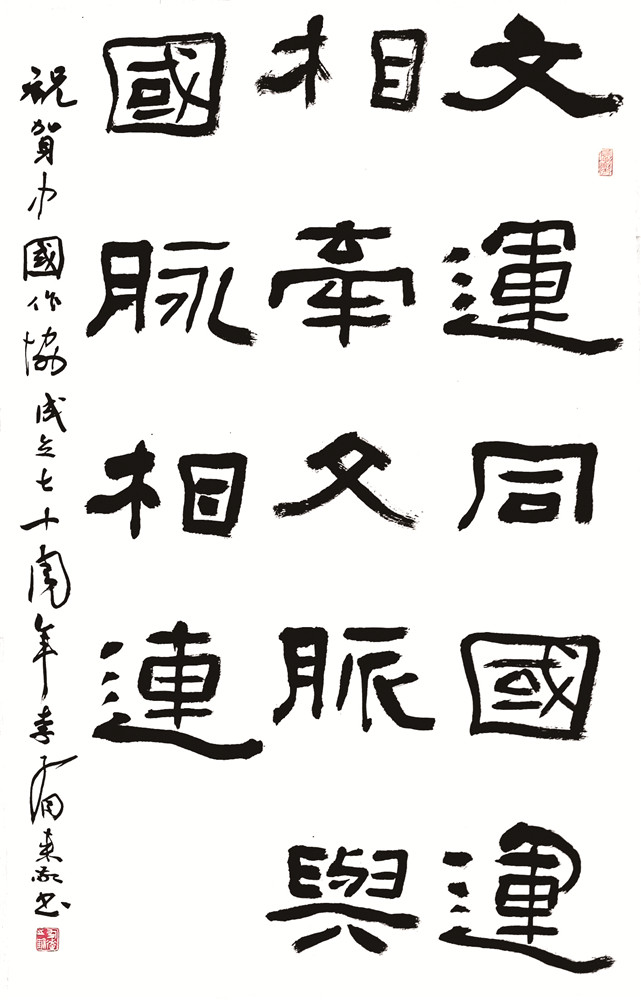 文運同國運
相牽文脈與
國脉相連
祝賀中國作協成立七十周年書